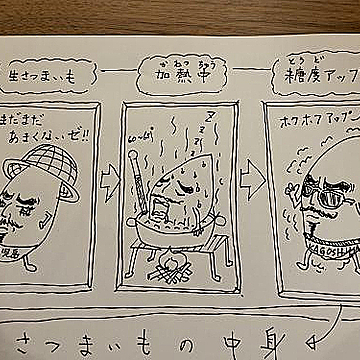 生さつまいも
かねつちゅう
加熱中
とうど
糖度アップ
まだまだ
あまくないぜ!!
60~65°
z
z
z
ホクホクアップ
児島
KAGOSHIMA
さつまいもの中身